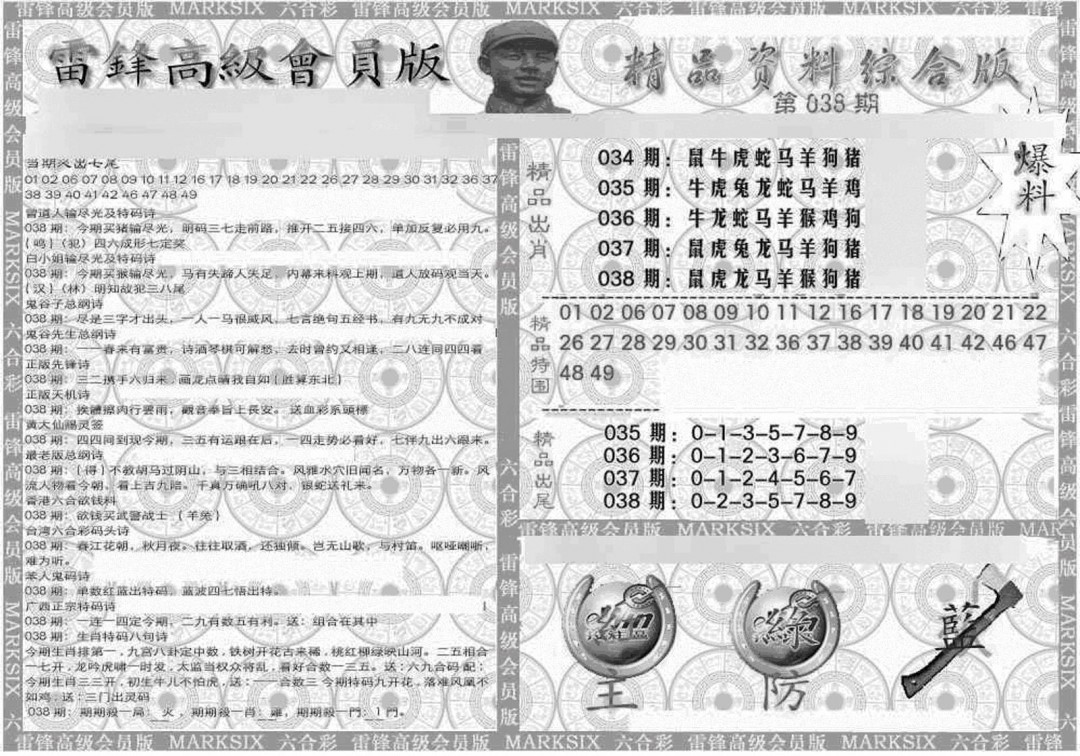 雷锋高级会员版 MARKSIX 六合彩 雷锋高级会员版 MARKSIX 六合彩 雷锋高级会员版 MARKSIX 六合彩 雷锋
雷鋒高級會員版
精品資料綜合版
第038期
爆料
当期灵出七尾
01 02 06 07 08 09 10 11 12 16 17 18 19 20 21 22 26 27 28 29 30 31 32 36 37
38 39 40 41 42 46 47 48 49
曾道人输尽光及特码诗
038 期：今期买猪输尽光，明码三七走前路，推开二五接四六，单加反复必用九。
{鸣}〈犯〉四六成形七定奖
白小姐输尽光及特码诗
038 期：今期买猴输尽光，马有失蹄人失足，内幕来料观上期，道人放码观当天。
{汉}〈林〉明知故犯三八尾
鬼谷子总纲诗
038 期：尽是三字才出头，一人一马很威风，七言绝句五经书，有九无九不成对
鬼谷先生总纲诗
038 期：一一春来有富贵，诗酒琴棋可解愁，去时曾约又相逢，二八连同四四看
正版先锋诗
038 期：三二携手六归来，画龙点睛我自如{胜算东北}
正版天机诗
038 期：挨體擦肉行雲雨，觀音奉旨上長安。 送血彩系頭標
黄大仙赐灵签
038 期：四四同到现今期，三五有运跟在后，一四走势必看好，七伴九出六跟来。
最老版总纲诗
038 期：{得}不教胡马过阴山，与三相结合。风雅水穴旧闻名，万物各一新。风
流人物看今朝，看上吉九陪。千真万确吼八对，银蛇送礼来。
香港六合欲钱料
038 期：欲钱买武警战士 {羊兔}
台湾六合彩码头诗
038 期：春江花朝，秋月夜，往往取酒，还独倾。岂无山歌，与村笛。呕哑嘲哳，
难为听。
苯人鬼码诗
038 期：单数红蓝出特码，蓝波四七悟出特。
广西正宗特码诗
038 期：一连一四定今期，二九有数五有利。送：组合在其中
038 期：生肖特码八句诗
今期生肖排第一，九宫八卦定中数，铁树开花古来稀，桃红柳绿映山河。二五相合
一七开，龙吟虎啸一时发，太监当权众将乱，看好合数一三五。送：六九合码 配：
今期生肖三三开，初生牛儿不怕虎，送：一一合数三 今期特码九开花，落难风凰不
如鸡，送：三门出灵码
038 期：期期殺一局： 火 ，期期殺一肖：雞，期期殺一門：1 門。
精品出肖
034 期：鼠牛虎蛇马羊狗猪
035 期：牛虎兔龙蛇马羊鸡
036 期：牛龙蛇马羊猴鸡狗
037 期：鼠虎兔龙马羊狗猪
038 期：鼠虎龙马羊猴狗猪
精品特围
01 02 06 07 08 09 10 11 12 16 17 18 19 20 21 22
26 27 28 29 30 31 32 36 37 38 39 40 41 42 46 47
48 49
精品出尾
035 期：0-1-3-5-7-8-9
036 期：0-1-2-3-6-7-9
037 期：0-1-2-4-5-6-7
038 期：0-2-3-5-7-8-9
雷锋高级会员版 MARKSIX 六合彩 雷锋高级会员版 MAR
綠
藍
主
防
雷锋高级会员版 MARKSIX 六合彩 雷锋高级会员版 MARKSIX 六合彩 雷锋高级会员版 MARKSIX 六合彩 雷锋